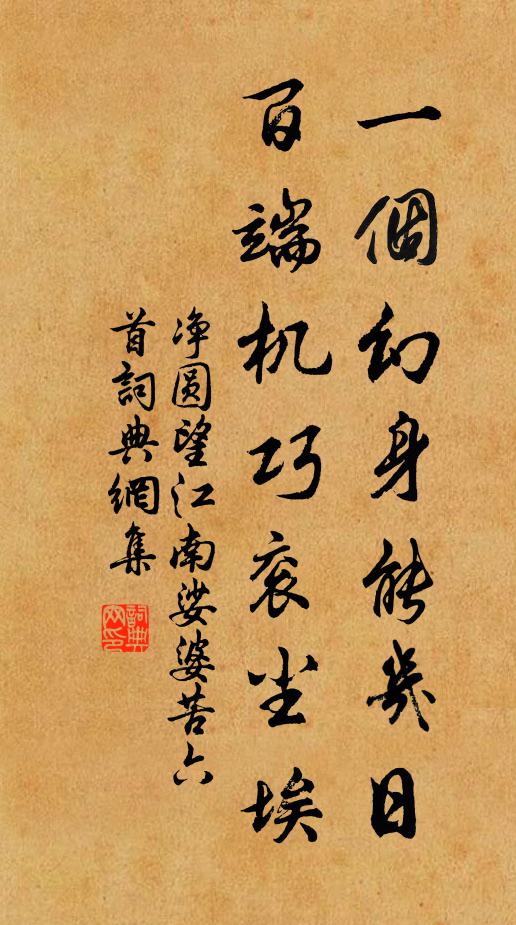 一個幻身能幾日
百端机巧衮尘埃
净圆望江南娑婆苦六
首詞典網集
詞典网印